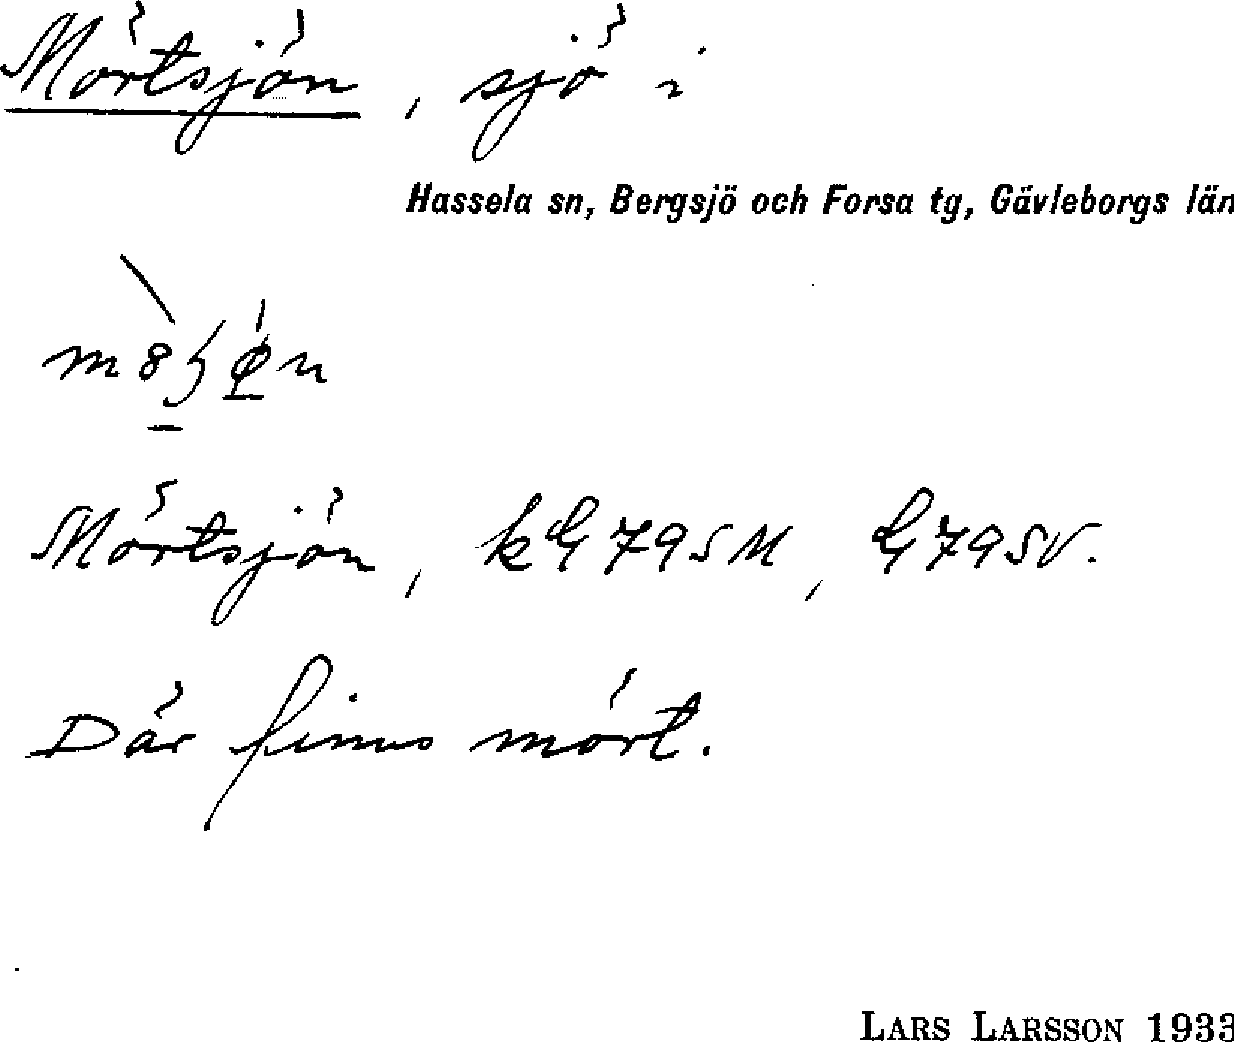 Mörtsjön, sjö i
Hassela sn, Bergsjö och Forsa tg, Gävleborgs län
Mörtsjön, kG 795M, G 795V.
Där finns mört.
LARS LARSSON 1933